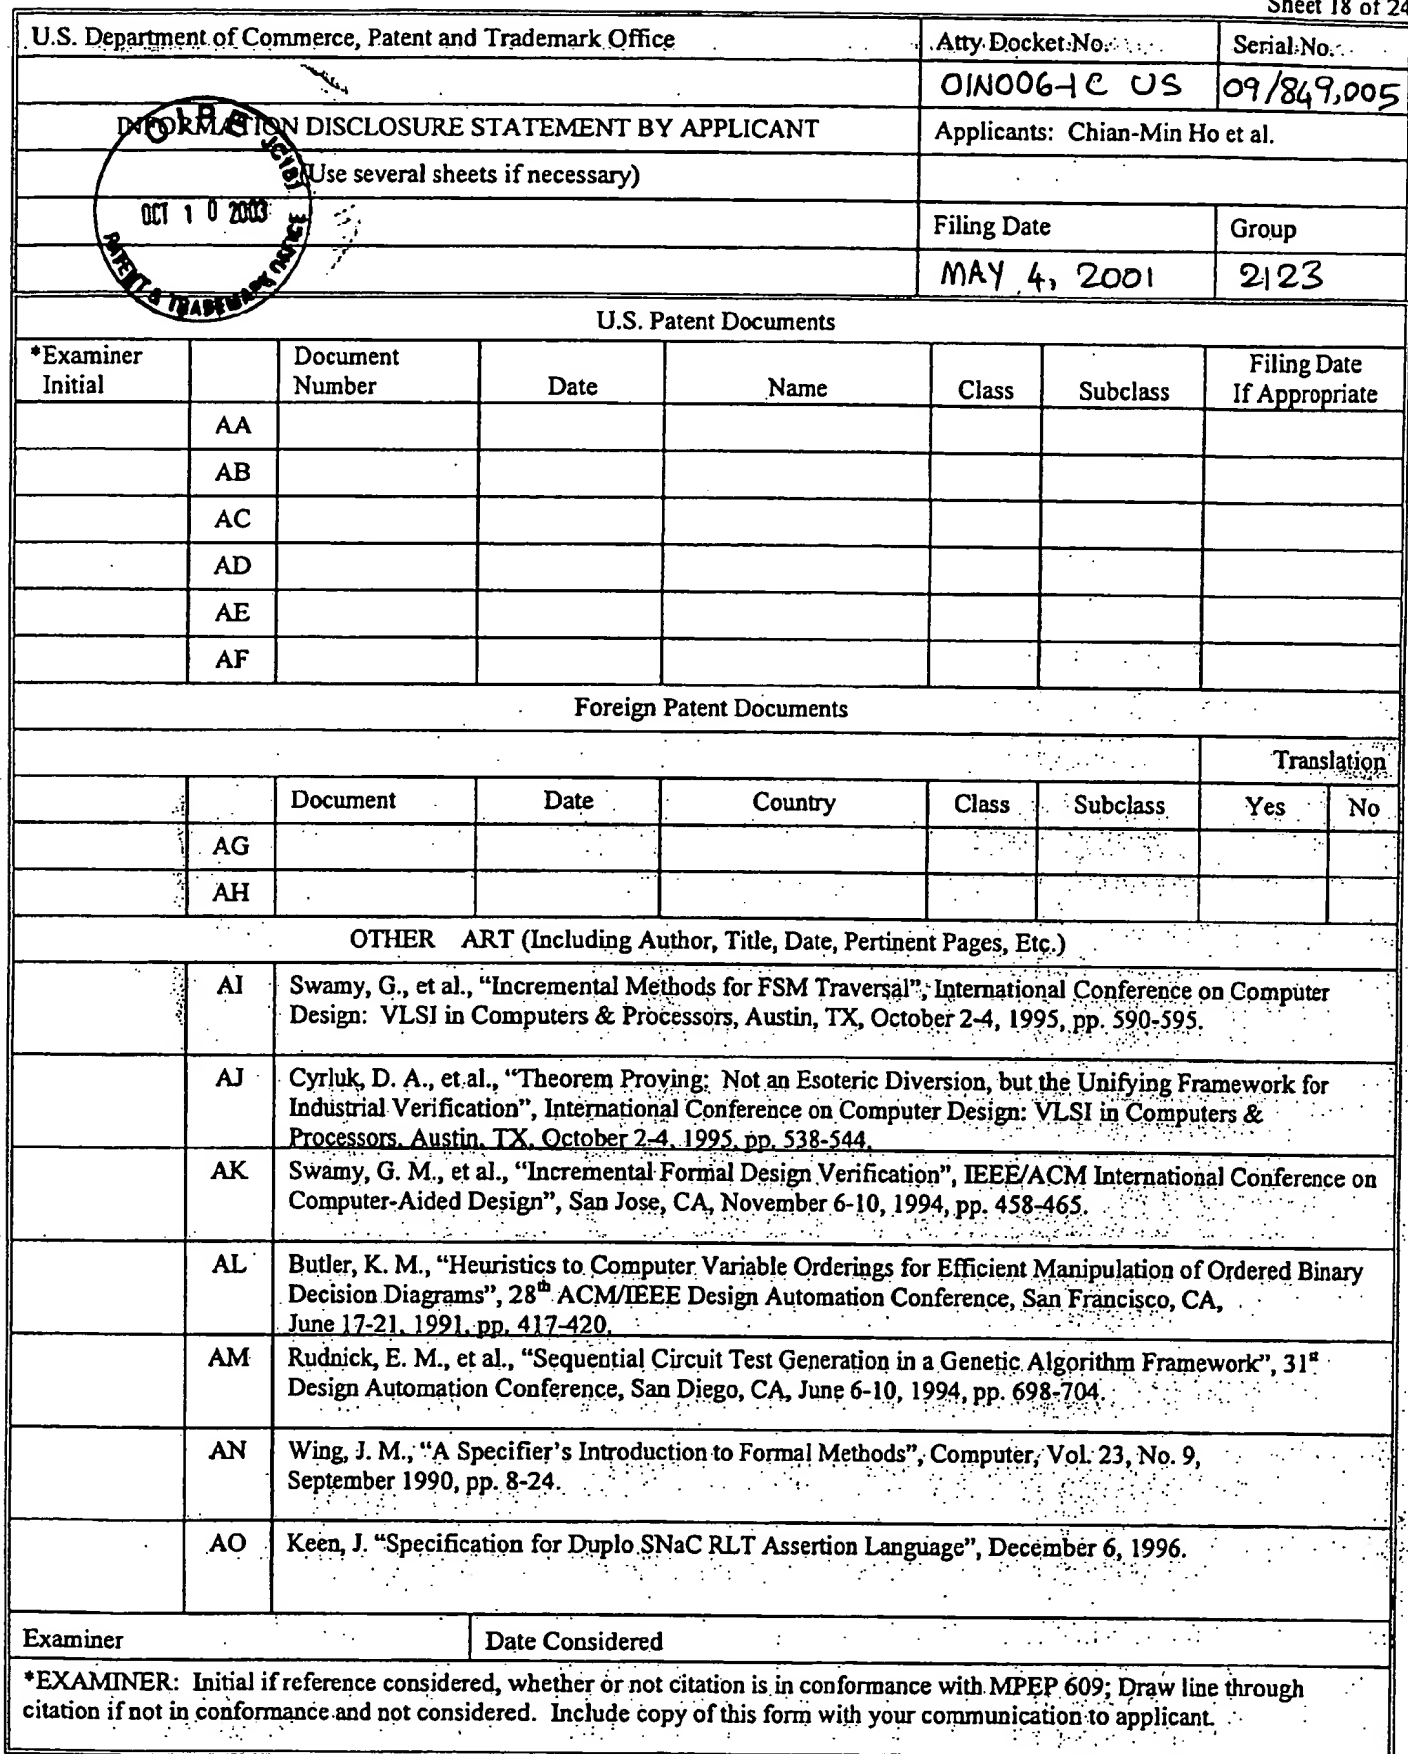 Sheet 18 of 24
U.S. Department of Commerce, Patent and Trademark Office
Atty Docket No.
Serial No.
OIN006-1C US
09/849,005
INFORMATION DISCLOSURE STATEMENT BY APPLICANT
Applicants: Chian-Min Ho et al.
(Use several sheets if necessary)
OIPE JC187
OCT 10 2003
PATENT & TRADEMARK OFFICE
Filing Date
Group
MAY 4, 2001
2123
U.S. Patent Documents
*Examiner Initial
Document Number
Date
Name
Class
Subclass
Filing Date If Appropriate
AA
AB
AC
AD
AE
AF
Foreign Patent Documents
Translation
Document
Date
Country
Class
Subclass
Yes
No
AG
AH
OTHER ART (Including Author, Title, Date, Pertinent Pages, Etc.)
AI
Swamy, G., et al., “Incremental Methods for FSM Traversal”, International Conference on Computer
Design: VLSI in Computers & Processors, Austin, TX, October 2-4, 1995, pp. 590-595.
AJ
Cyrluk, D. A., et al., “Theorem Proving: Not an Esoteric Diversion, but the Unifying Framework for
Industrial Verification”, International Conference on Computer Design: VLSI in Computers &
Processors, Austin, TX, October 2-4, 1995, pp. 538-544.
AK
Swamy, G. M., et al., “Incremental Formal Design Verification”, IEEE/ACM International Conference on
Computer-Aided Design”, San Jose, CA, November 6-10, 1994, pp. 458-465.
AL
Butler, K. M., “Heuristics to Computer Variable Orderings for Efficient Manipulation of Ordered Binary
Decision Diagrams”, 28th ACM/IEEE Design Automation Conference, San Francisco, CA,
June 17-21, 1991, pp. 417-420.
AM
Rudnick, E. M., et al., “Sequential Circuit Test Generation in a Genetic Algorithm Framework”, 31st
Design Automation Conference, San Diego, CA, June 6-10, 1994, pp. 698-704.
AN
Wing, J. M., “A Specifier’s Introduction to Formal Methods”, Computer, Vol. 23, No. 9,
September 1990, pp. 8-24.
AO
Keen, J. “Specification for Duplo SNaC RLT Assertion Language”, December 6, 1996.
Examiner
Date Considered
*EXAMINER: Initial if reference considered, whether or not citation is in conformance with MPEP 609; Draw line through
citation if not in conformance and not considered. Include copy of this form with your communication to applicant.